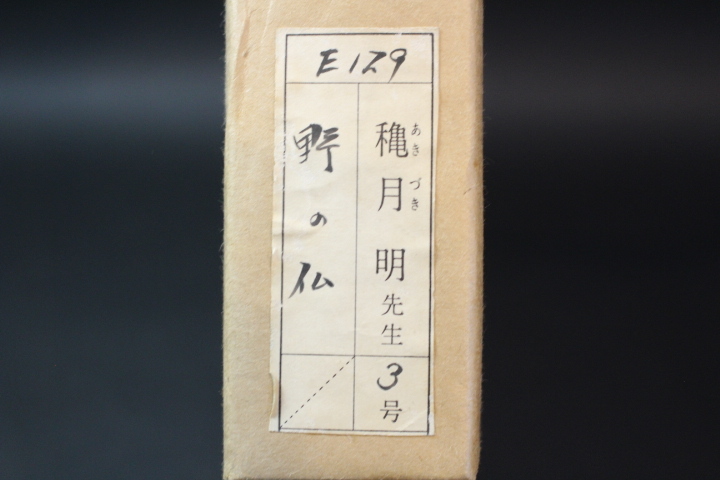 E129
穐月 明先生
あき づき
3号
野の仏